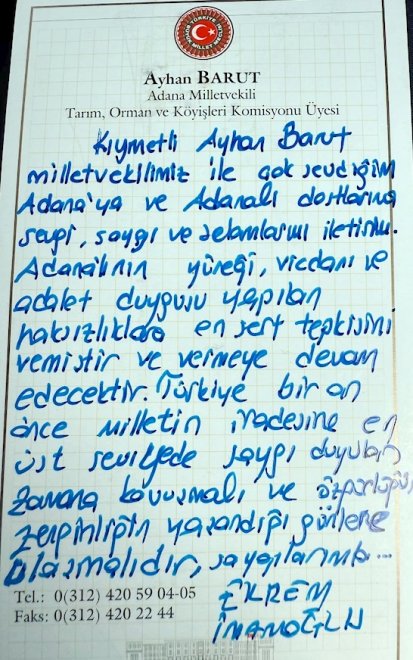 Ayhan BARUT
Adana Milletvekili
Tarım, Orman ve Köyişleri Komisyonu Üyesi
Kıymetli Ayhan Barut
milletvekilimiz ile çok sevdiğim
Adana'ya ve Adanalı dostlarıma
sevgi, saygı ve selamlarımı iletirim.
Adanalının yüreği, vicdanı ve
adalet duygusu yapılan
haksızlıklara en sert tepkisini
vermiştir ve vermeye devam
edecektir. Türkiye bir an
önce milletin iradesine en
üst seviyede saygı duyulan
zamana kavuşmalı ve özgürlüğün
zenginliğin yaşandığı günlere
ulaşmalıdır, saygılarımla...
EKREM
İMAMOĞLU
Tel.: 0(312) 420 59 04-05
Faks: 0(312) 420 22 44